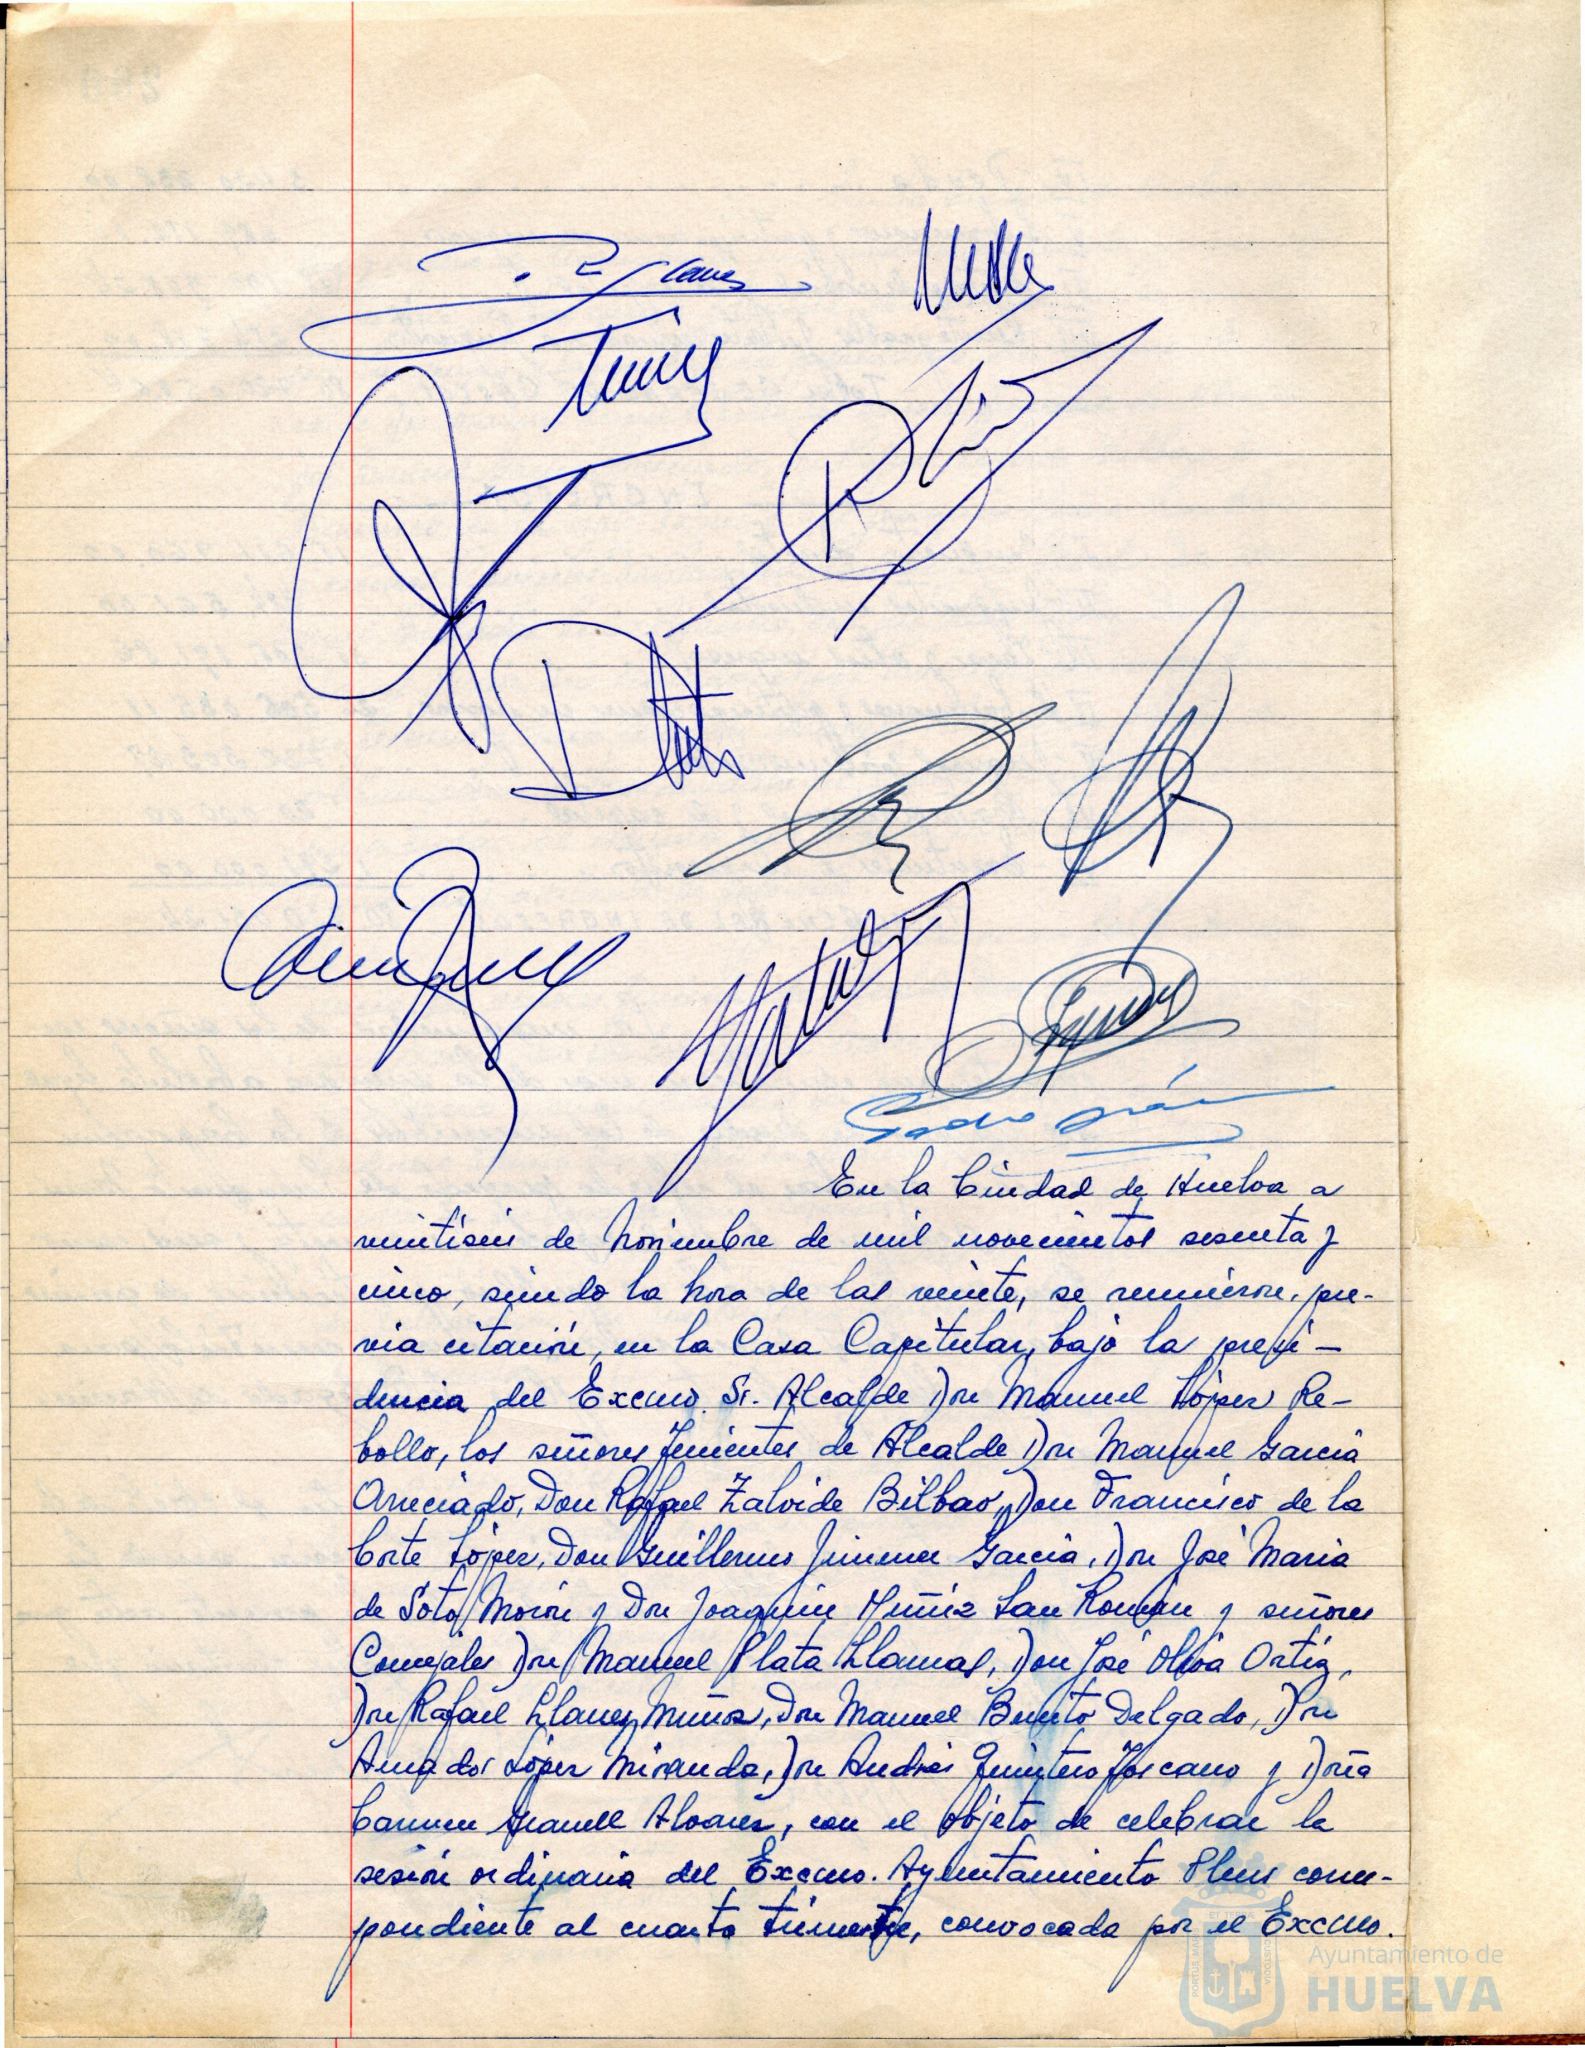 Pedro Grán
En la Ciudad de Huelva a
veintiseis de Noviembre de mil novecientos sesenta y
cinco, siendo la hora de las veinte, se reunieron, pre-
via citación, en la Casa Capitular, bajo la presi-
dencia del Excmo. Sr. Alcalde Don Manuel López Re-
bollo, los señores Tenientes de Alcalde Don Manuel Garcia
Oreciado, Don Rafael Zalvide Bilbao, Don Francisco de la
Corte López, Don Guillermo Jimenez Garcia, Don José Maria
de Soto Morón y Don Joaquin Muñiz San Román y señores
Concejales Don Manuel Plata Llamas, Don José Oliva Ortiz,
Don Rafael Llanes Muñoz, Don Manuel Benito Delgado, Don
Amador López Miranda, Don Andrés Quintero Toscano y Doña
Carmen Granell Alvarez, con el objeto de celebrar la
sesión ordinaria del Excmo. Ayuntamiento Pleno corres-
pondiente al cuarto trimestre, convocada por el Excmo.
Ayuntamiento de
HUELVA